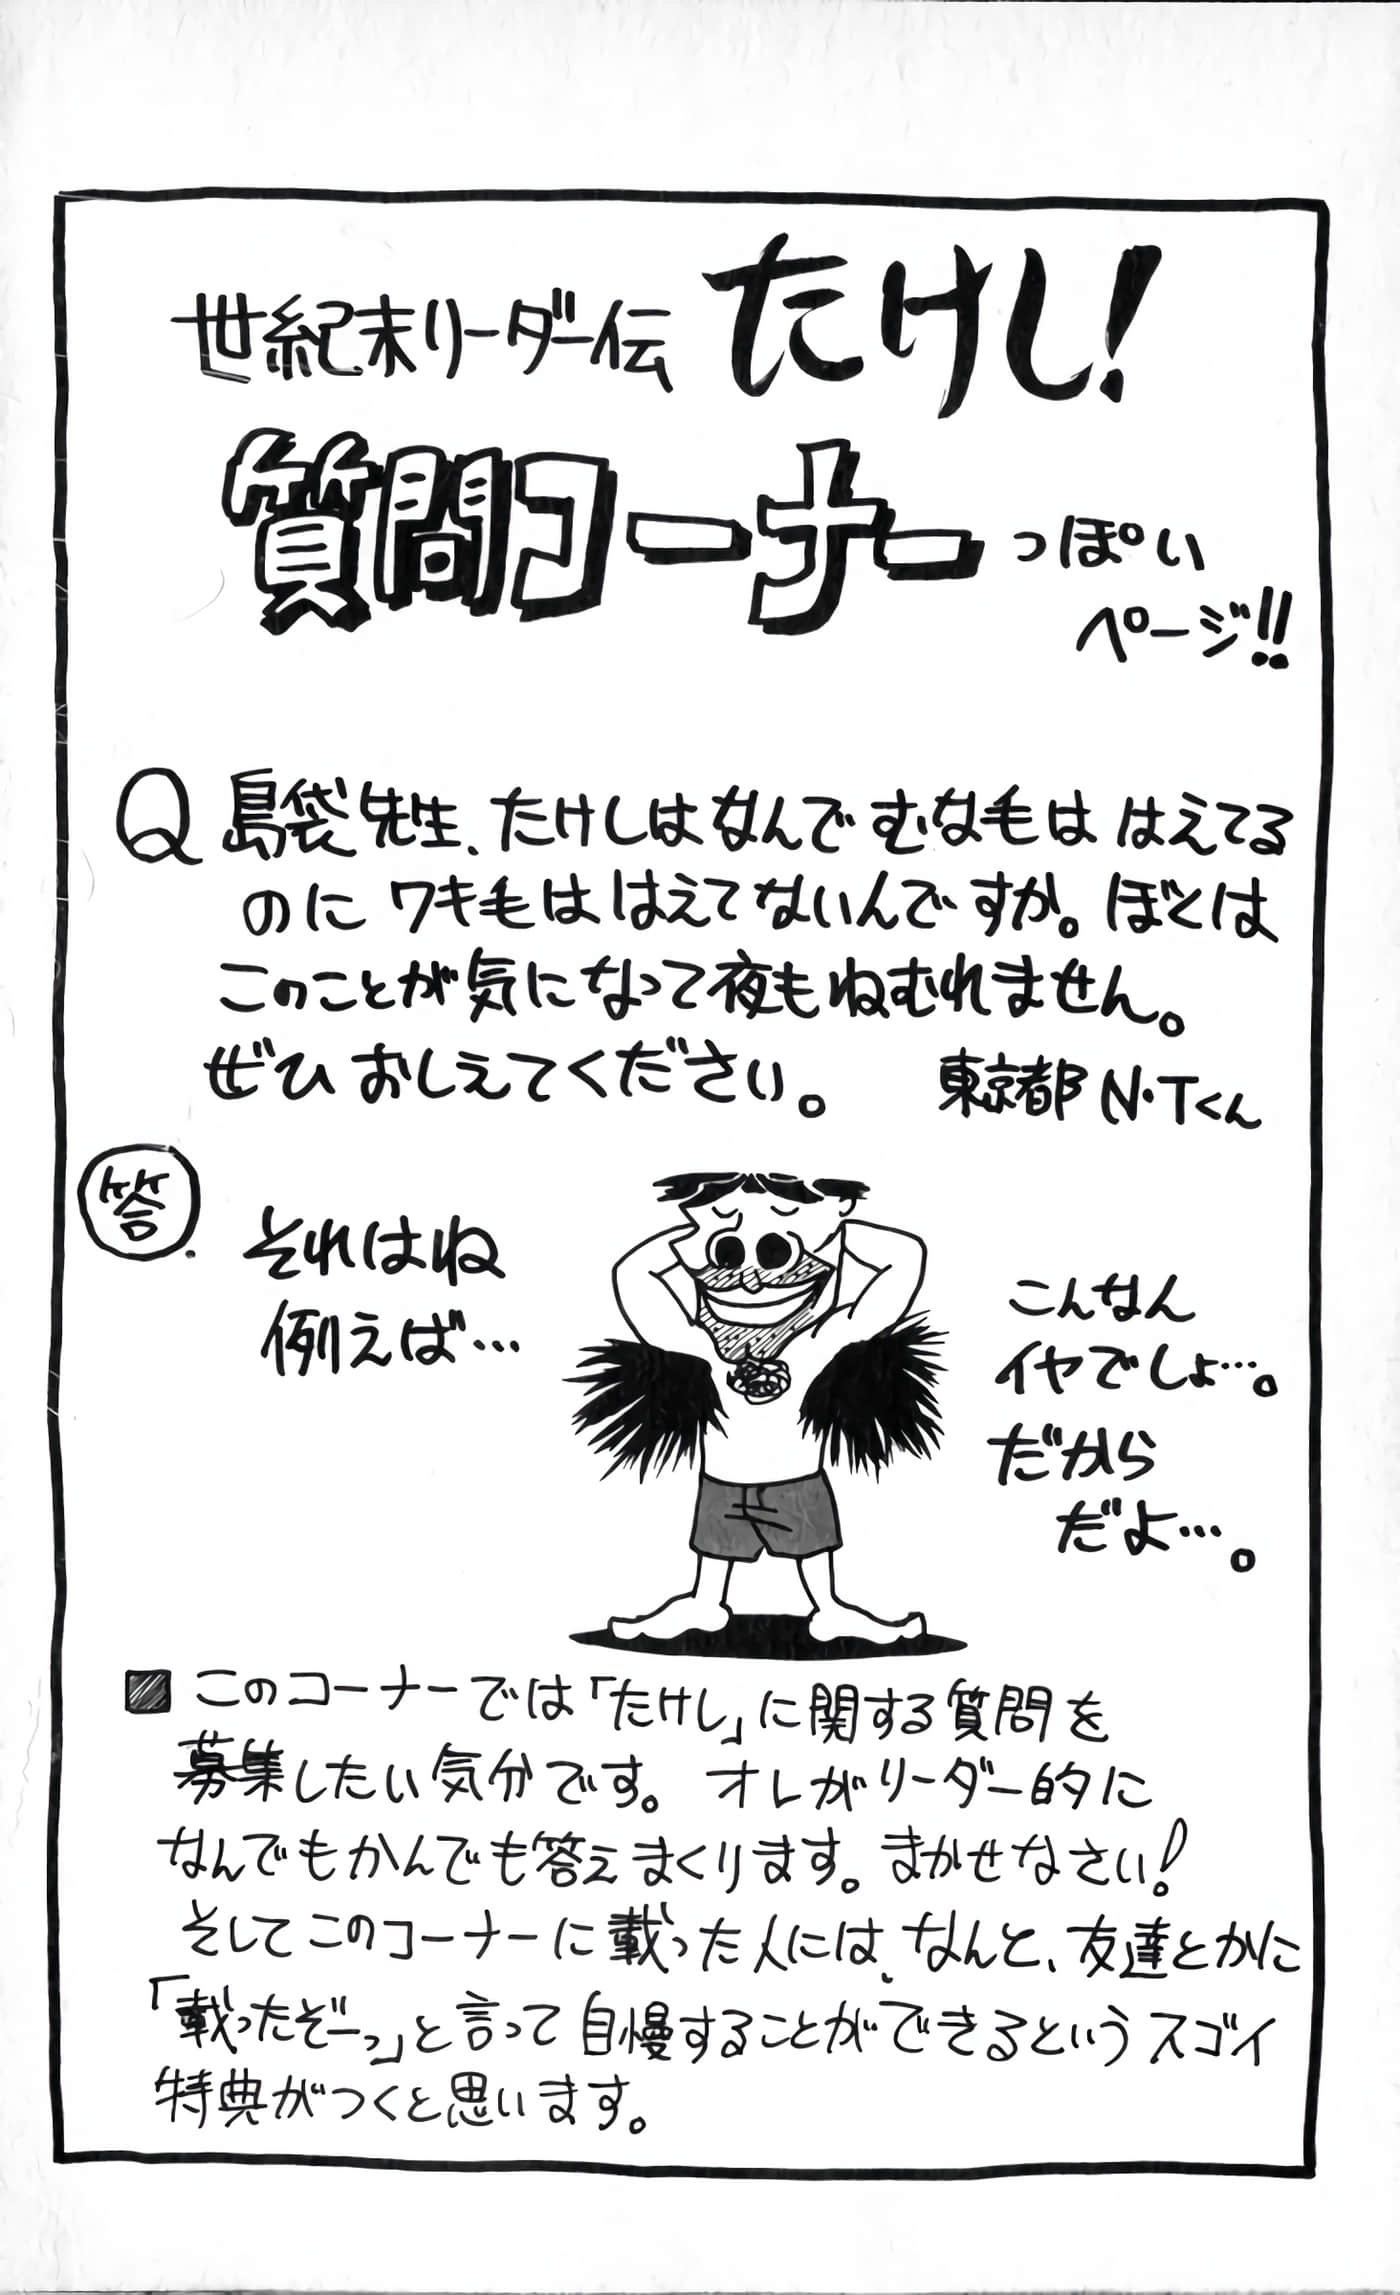 世紀末リーダー伝たけし!
質問コーナーっぽい
ページ!!
Q 島袋先生、たけしはなんでむな毛ははえてる
のにワキ毛ははえてないんですか。ぼくは
このことが気になって夜もねむれません。
ぜひおしえてください。 東京都 N・Tくん
答
それはね
例えば…
こんなん
イヤでしょ…。
だから
だよ…。
■ このコーナーでは「たけし」に関する質問を
募集したい気分です。オレがリーダー的に
なんでもかんでも答えまくります。まかせなさい!
そしてこのコーナーに載った人には、なんと、友達とかに
「載ったぞーっ」と言って自慢することができるというスゴイ
特典がつくと思います。